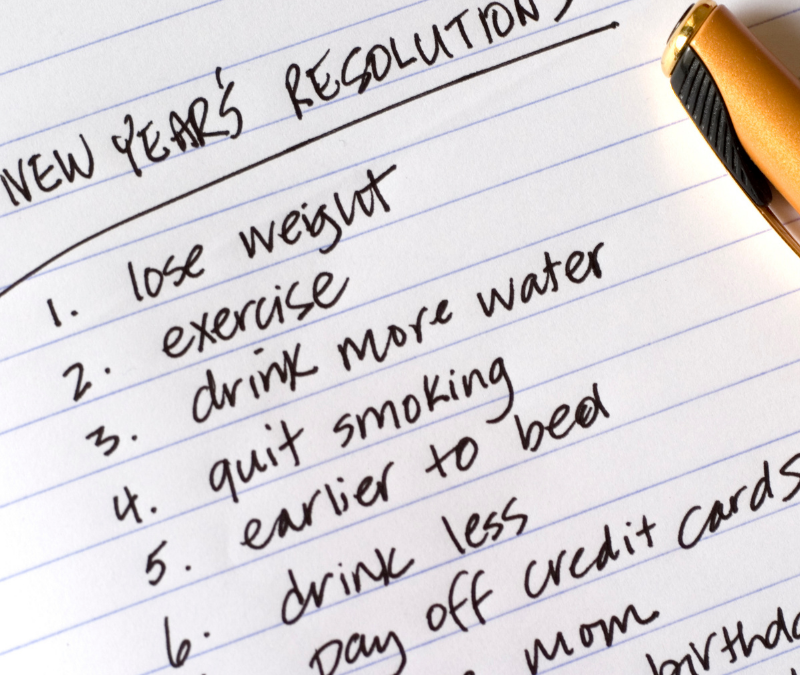 NEW YEAR'S RESOLUTIONS
1. lose weight
2. exercise
3. drink more water
4. quit smoking
5. earlier to bed
6. drink less
pay off credit cards
mom